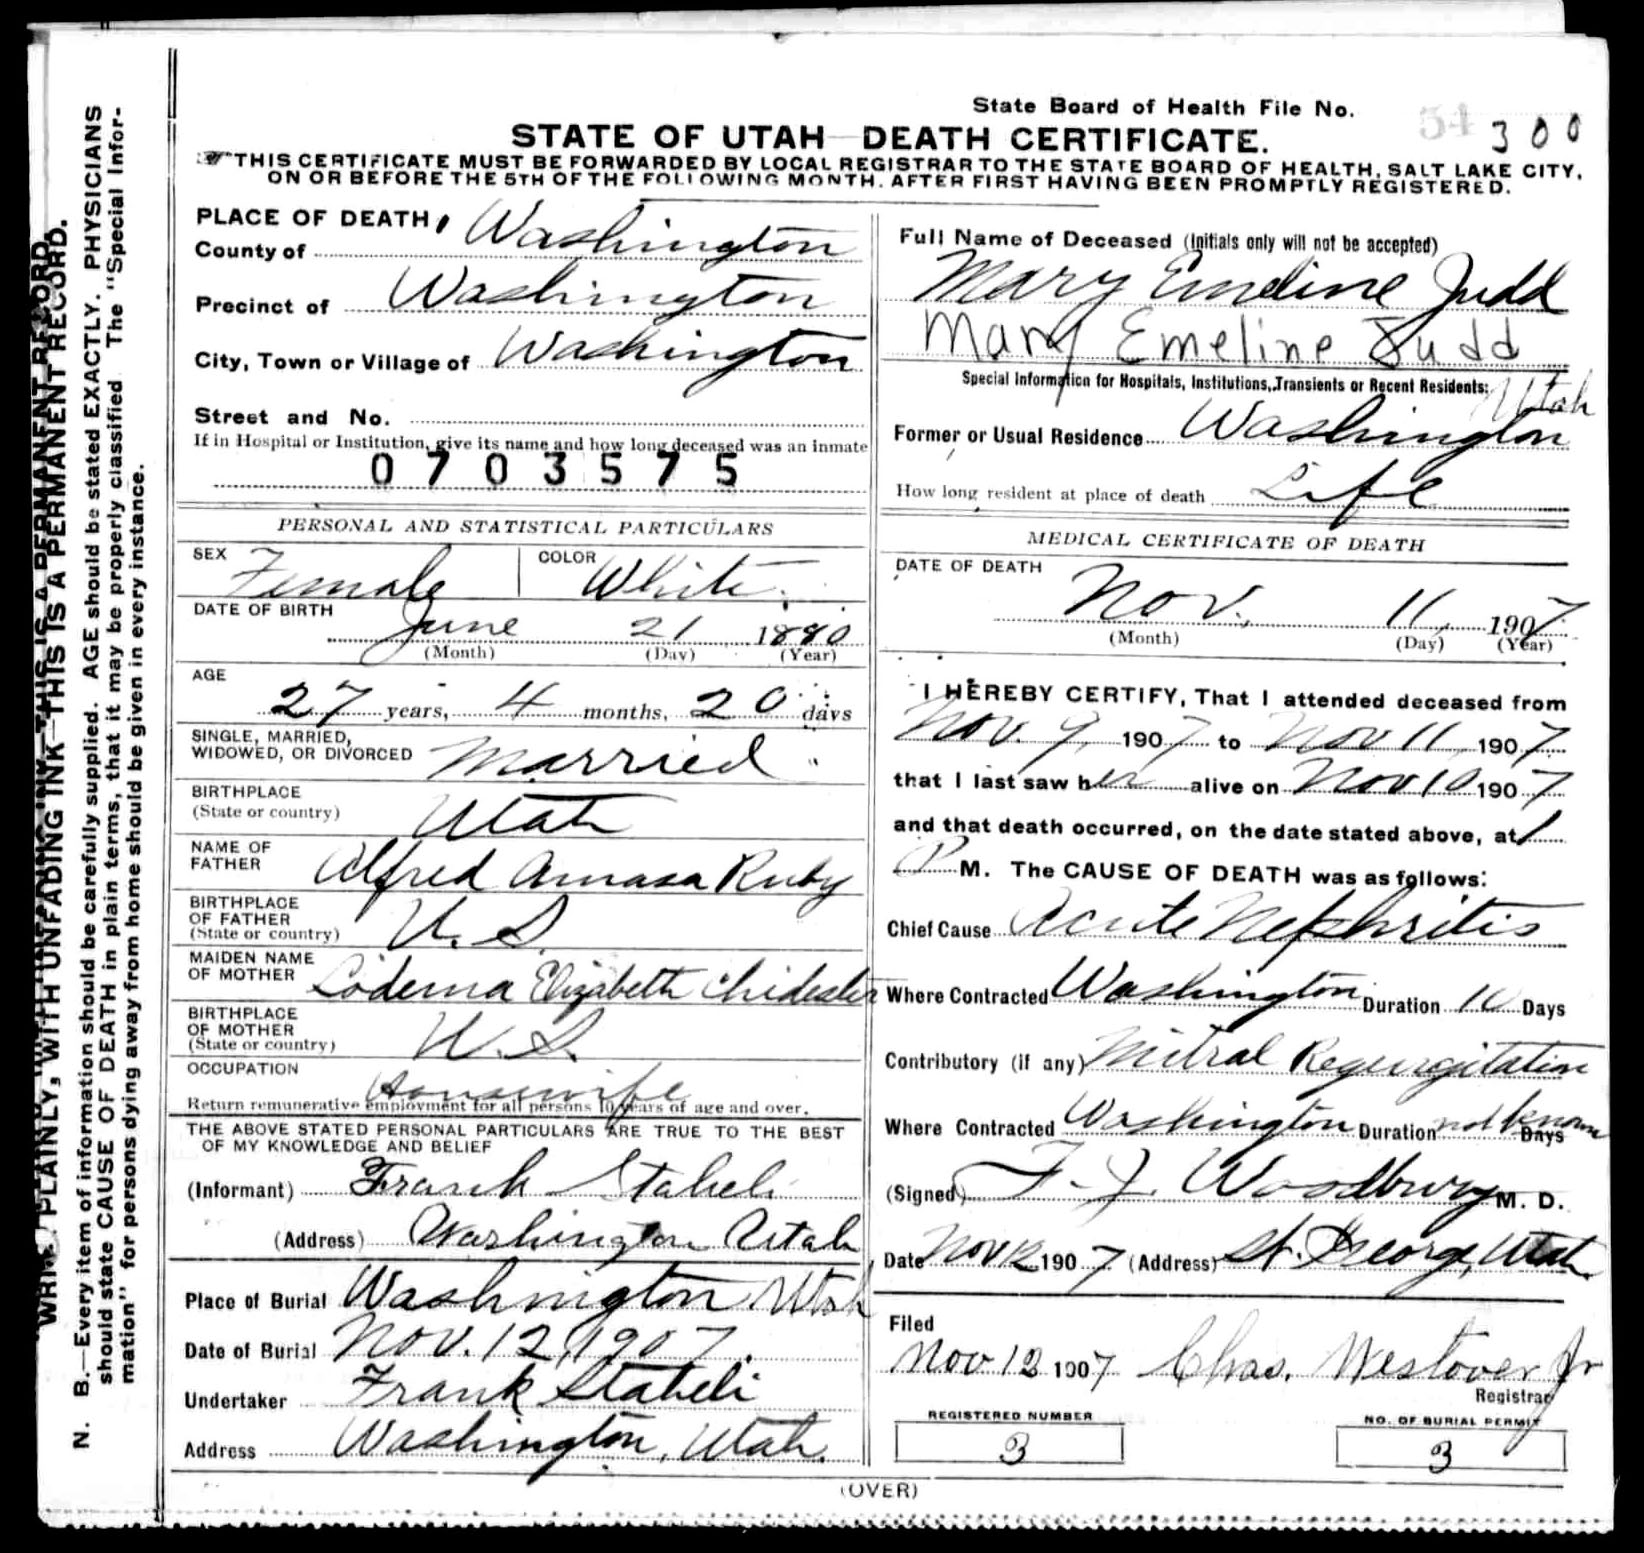 WRITE PLAINLY, WITH UNFADING INK—THIS IS A PERMANENT RECORD.
N. B.—Every item of information should be carefully supplied. AGE should be stated EXACTLY. PHYSICIANS
should state CAUSE OF DEATH in plain terms, that it may be properly classified The "Special Infor-
mation" for persons dying away from home should be given in every instance.
State Board of Health File No.
54 300
STATE OF UTAH—DEATH CERTIFICATE.
THIS CERTIFICATE MUST BE FORWARDED BY LOCAL REGISTRAR TO THE STATE BOARD OF HEALTH, SALT LAKE CITY,
ON OR BEFORE THE 5TH OF THE FOLLOWING MONTH. AFTER FIRST HAVING BEEN PROMPTLY REGISTERED.
PLACE OF DEATH,
County of Washington
Precinct of Washington
City, Town or Village of Washington
Street and No.
If in Hospital or Institution, give its name and how long deceased was an inmate
0703575
PERSONAL AND STATISTICAL PARTICULARS
SEX Female COLOR White
DATE OF BIRTH
June 21 1880
(Month) (Day) (Year)
AGE
27 years, 4 months, 20 days
SINGLE, MARRIED,
WIDOWED, OR DIVORCED Married
BIRTHPLACE
(State or country) Utah
NAME OF
FATHER Alfred Amasa Ruby
BIRTHPLACE
OF FATHER
(State or country) U. S.
MAIDEN NAME
OF MOTHER Lodema Elizabeth Chidester
BIRTHPLACE
OF MOTHER
(State or country) U. S.
OCCUPATION
Housewife
Return remunerative employment for all persons 10 years of age and over.
THE ABOVE STATED PERSONAL PARTICULARS ARE TRUE TO THE BEST
OF MY KNOWLEDGE AND BELIEF
(Informant) Frank Staheli
(Address) Washington Utah
Place of Burial Washington Utah
Date of Burial Nov. 12, 1907.
Undertaker Frank Staheli
Address Washington, Utah.
Full Name of Deceased (Initials only will not be accepted)
Mary Emeline Judd
Mary Emeline Judd
Special Information for Hospitals, Institutions, Transients or Recent Residents:
Utah
Former or Usual Residence Washington
How long resident at place of death Life
MEDICAL CERTIFICATE OF DEATH
DATE OF DEATH
Nov. 11, 1907
(Month) (Day) (Year)
I HEREBY CERTIFY, That I attended deceased from
Nov. 9, 1907 to Nov 11, 1907
that I last saw her alive on Nov 10 1907
and that death occurred, on the date stated above, at 1
P M. The CAUSE OF DEATH was as follows:
Chief Cause Acute Nephritis
Where Contracted Washington Duration 10 Days
Contributory (if any) Mitral Regurgitation
Where Contracted Washington Duration not known Days
(Signed) F. J. Woodbury M. D.
Date Nov 12 1907 (Address) St. George, Utah.
Filed
Nov 12 1907 Chas. Westover Jr
Registrar
REGISTERED NUMBER NO. OF BURIAL PERMIT
3 3
(OVER)